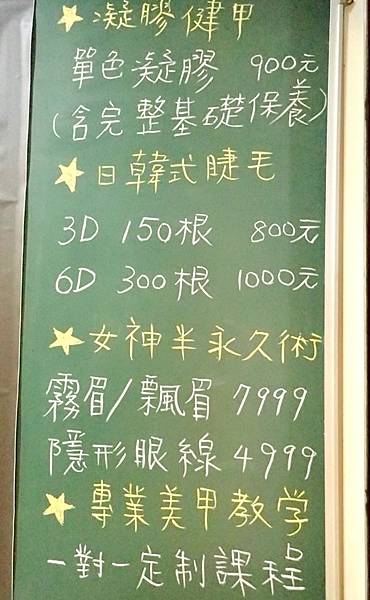 ★凝膠健甲
單色凝膠 900元
(含完整基礎保養)
★日韓式睫毛
3D 150根 800元
6D 300根 1000元
★女神半永久術
霧眉/飄眉 7999
隱形眼線 4999
★專業美甲教学
一對一定制課程